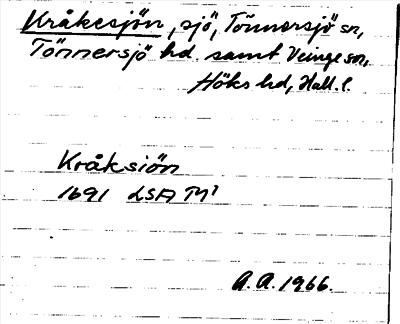 Kråkesjön, sjö, Tönnersjö sn,
Tönnersjö hd. samt Veinge sn,
Höks hd, Hall. l.
Kråksiön
1691 LSA M¹
A.A. 1966.